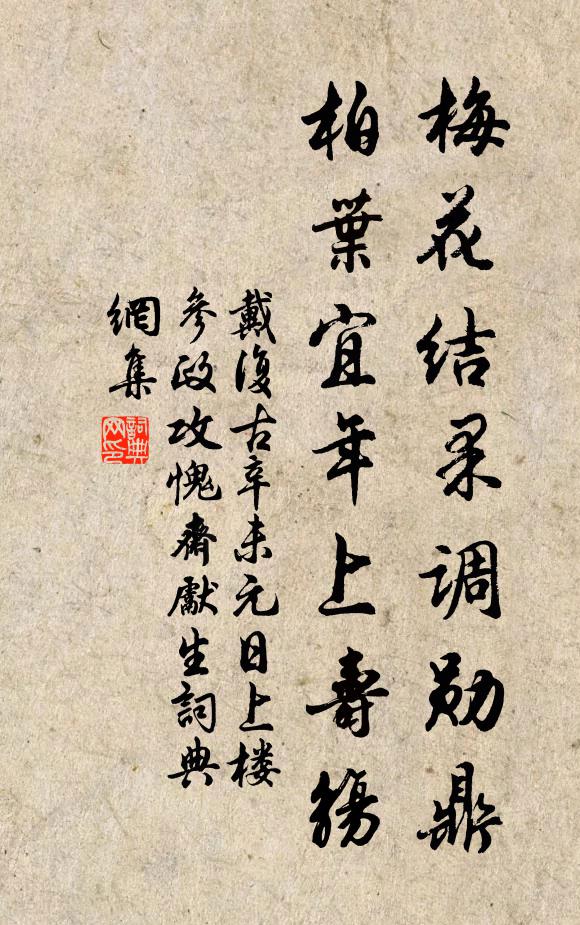 梅花结果调勋鼎
柏葉宜年上壽觴
戴復古辛未元日上楼
參政攻愧齋獻生詞典
網集
詞典
网印